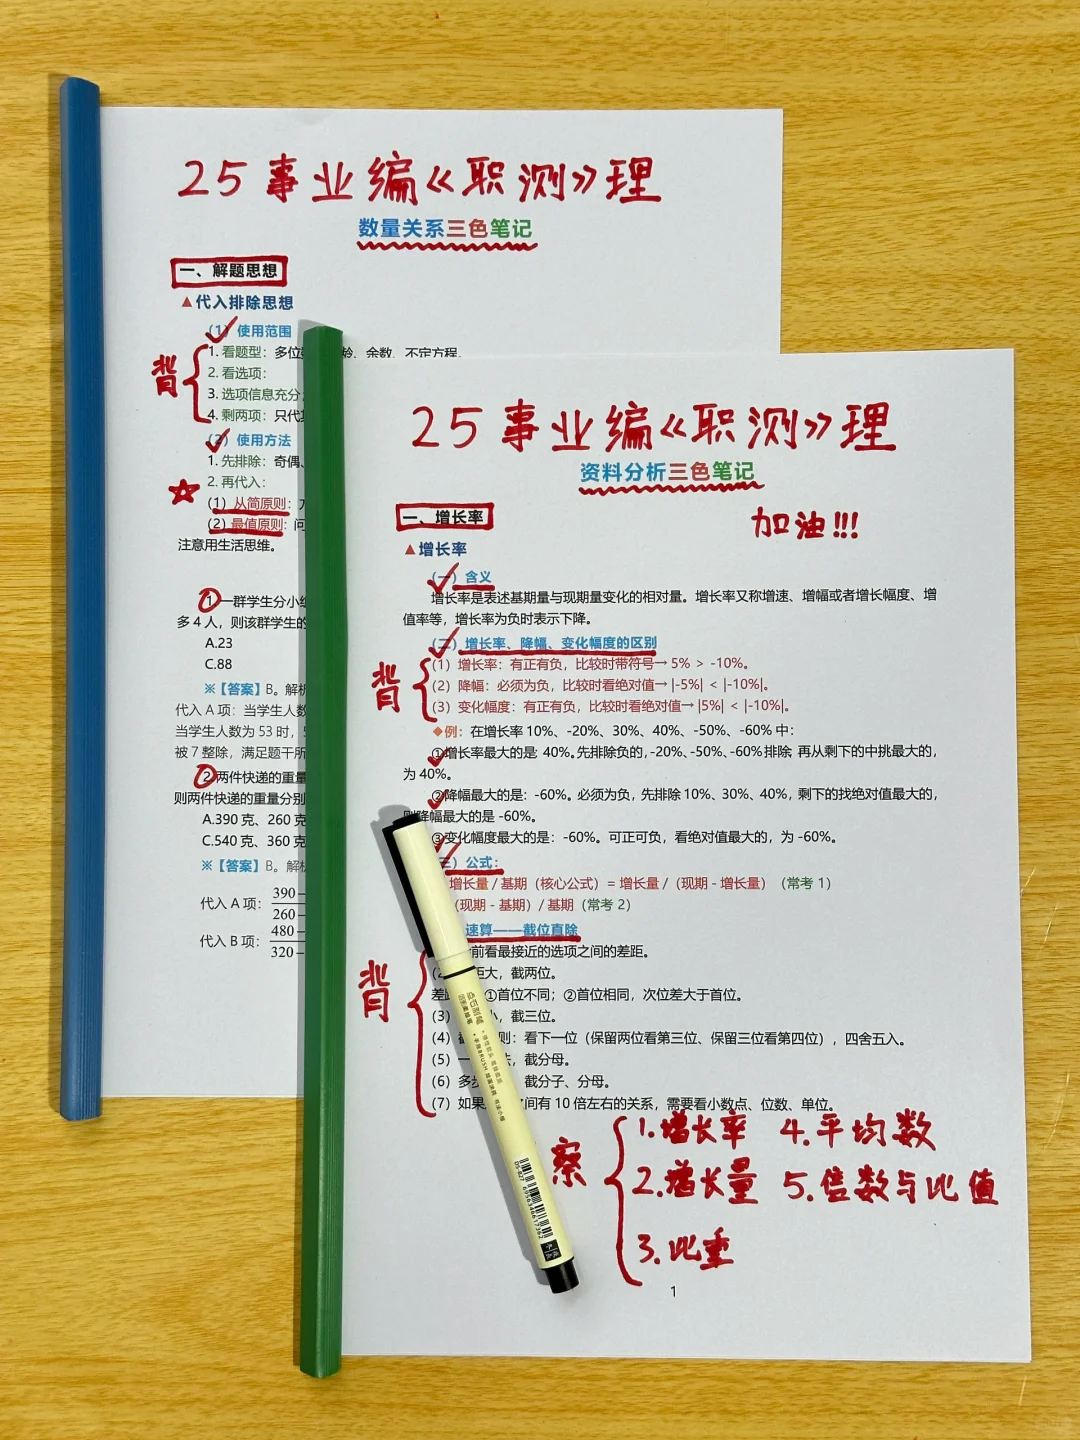 25事业编《职测》理
数量关系三色笔记
一、解题思想
▲代入排除思想
(1) 使用范围
背
1. 看题型：多位 龄、余数、不定方程。
2. 看选项：
3. 选项信息充分
4. 剩两项：只代
(2) 使用方法
1. 先排除：奇偶、
2. 再代入：
(1) 从简原则：
(2) 最值原则：问
注意用生活思维。
1 一群学生分小组
多 4 人，则该群学生的
A.23
C.88
※【答案】B。解析
代入 A 项：当学生人数
当学生人数为 53 时，
被 7 整除，满足题干所
2.两件快递的重量
则两件快递的重量分别
A.390 克、260 克
C.540 克、360 克
※【答案】B。解析
代入 A 项：390-
260-
代入 B 项：480-
320-
25事业编《职测》理
资料分析三色笔记
加油!!!
一、增长率
▲增长率
(一) 含义
增长率是表述基期量与现期量变化的相对量。增长率又称增速、增幅或者增长幅度、增
值率等，增长率为负时表示下降。
(二) 增长率、降幅、变化幅度的区别
背
(1) 增长率：有正有负，比较时带符号→ 5% > -10%。
(2) 降幅：必须为负，比较时看绝对值→ |-5%| < |-10%|。
(3) 变化幅度：有正有负，比较时看绝对值→ |5%| < |-10%|。
❖例：在增长率 10%、-20%、30%、40%、-50%、-60% 中：
①增长率最大的是 40%。先排除负的，-20%、-50%、-60% 排除 再从剩下的中挑最大的，
为 40%。
②降幅最大的是：-60%。必须为负，先排除 10%、30%、40%，剩下的找绝对值最大的，
则降幅最大的是 -60%。
③变化幅度最大的是：-60%。可正可负，看绝对值最大的，为 -60%。
三) 公式：
增长量 / 基期（核心公式）= 增长量 /（现期 - 增长量）（常考 1）
（现期 - 基期）/ 基期（常考 2）
速算——截位直除
背
前看最接近的选项之间的差距。
(2 距大，截两位。
差 ①首位不同；②首位相同，次位差大于首位。
(3) 小，截三位。
(4) 则：看下一位（保留两位看第三位、保留三位看第四位），四舍五入。
(5) 一 法，截分母。
(6) 多步 截分子、分母。
(7) 如果 之间有 10 倍左右的关系，需要看小数点、位数、单位。
察
1.增长率 4.平均数
2.增长量 5.倍数与比值
3.比重
1